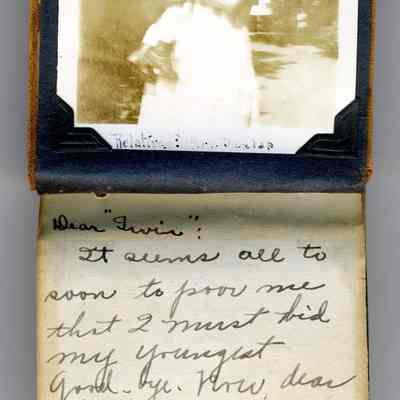 Dear "Twin":
It seems all to
soon to poor me
that I must bid
my youngest
Good-bye. Now, dear